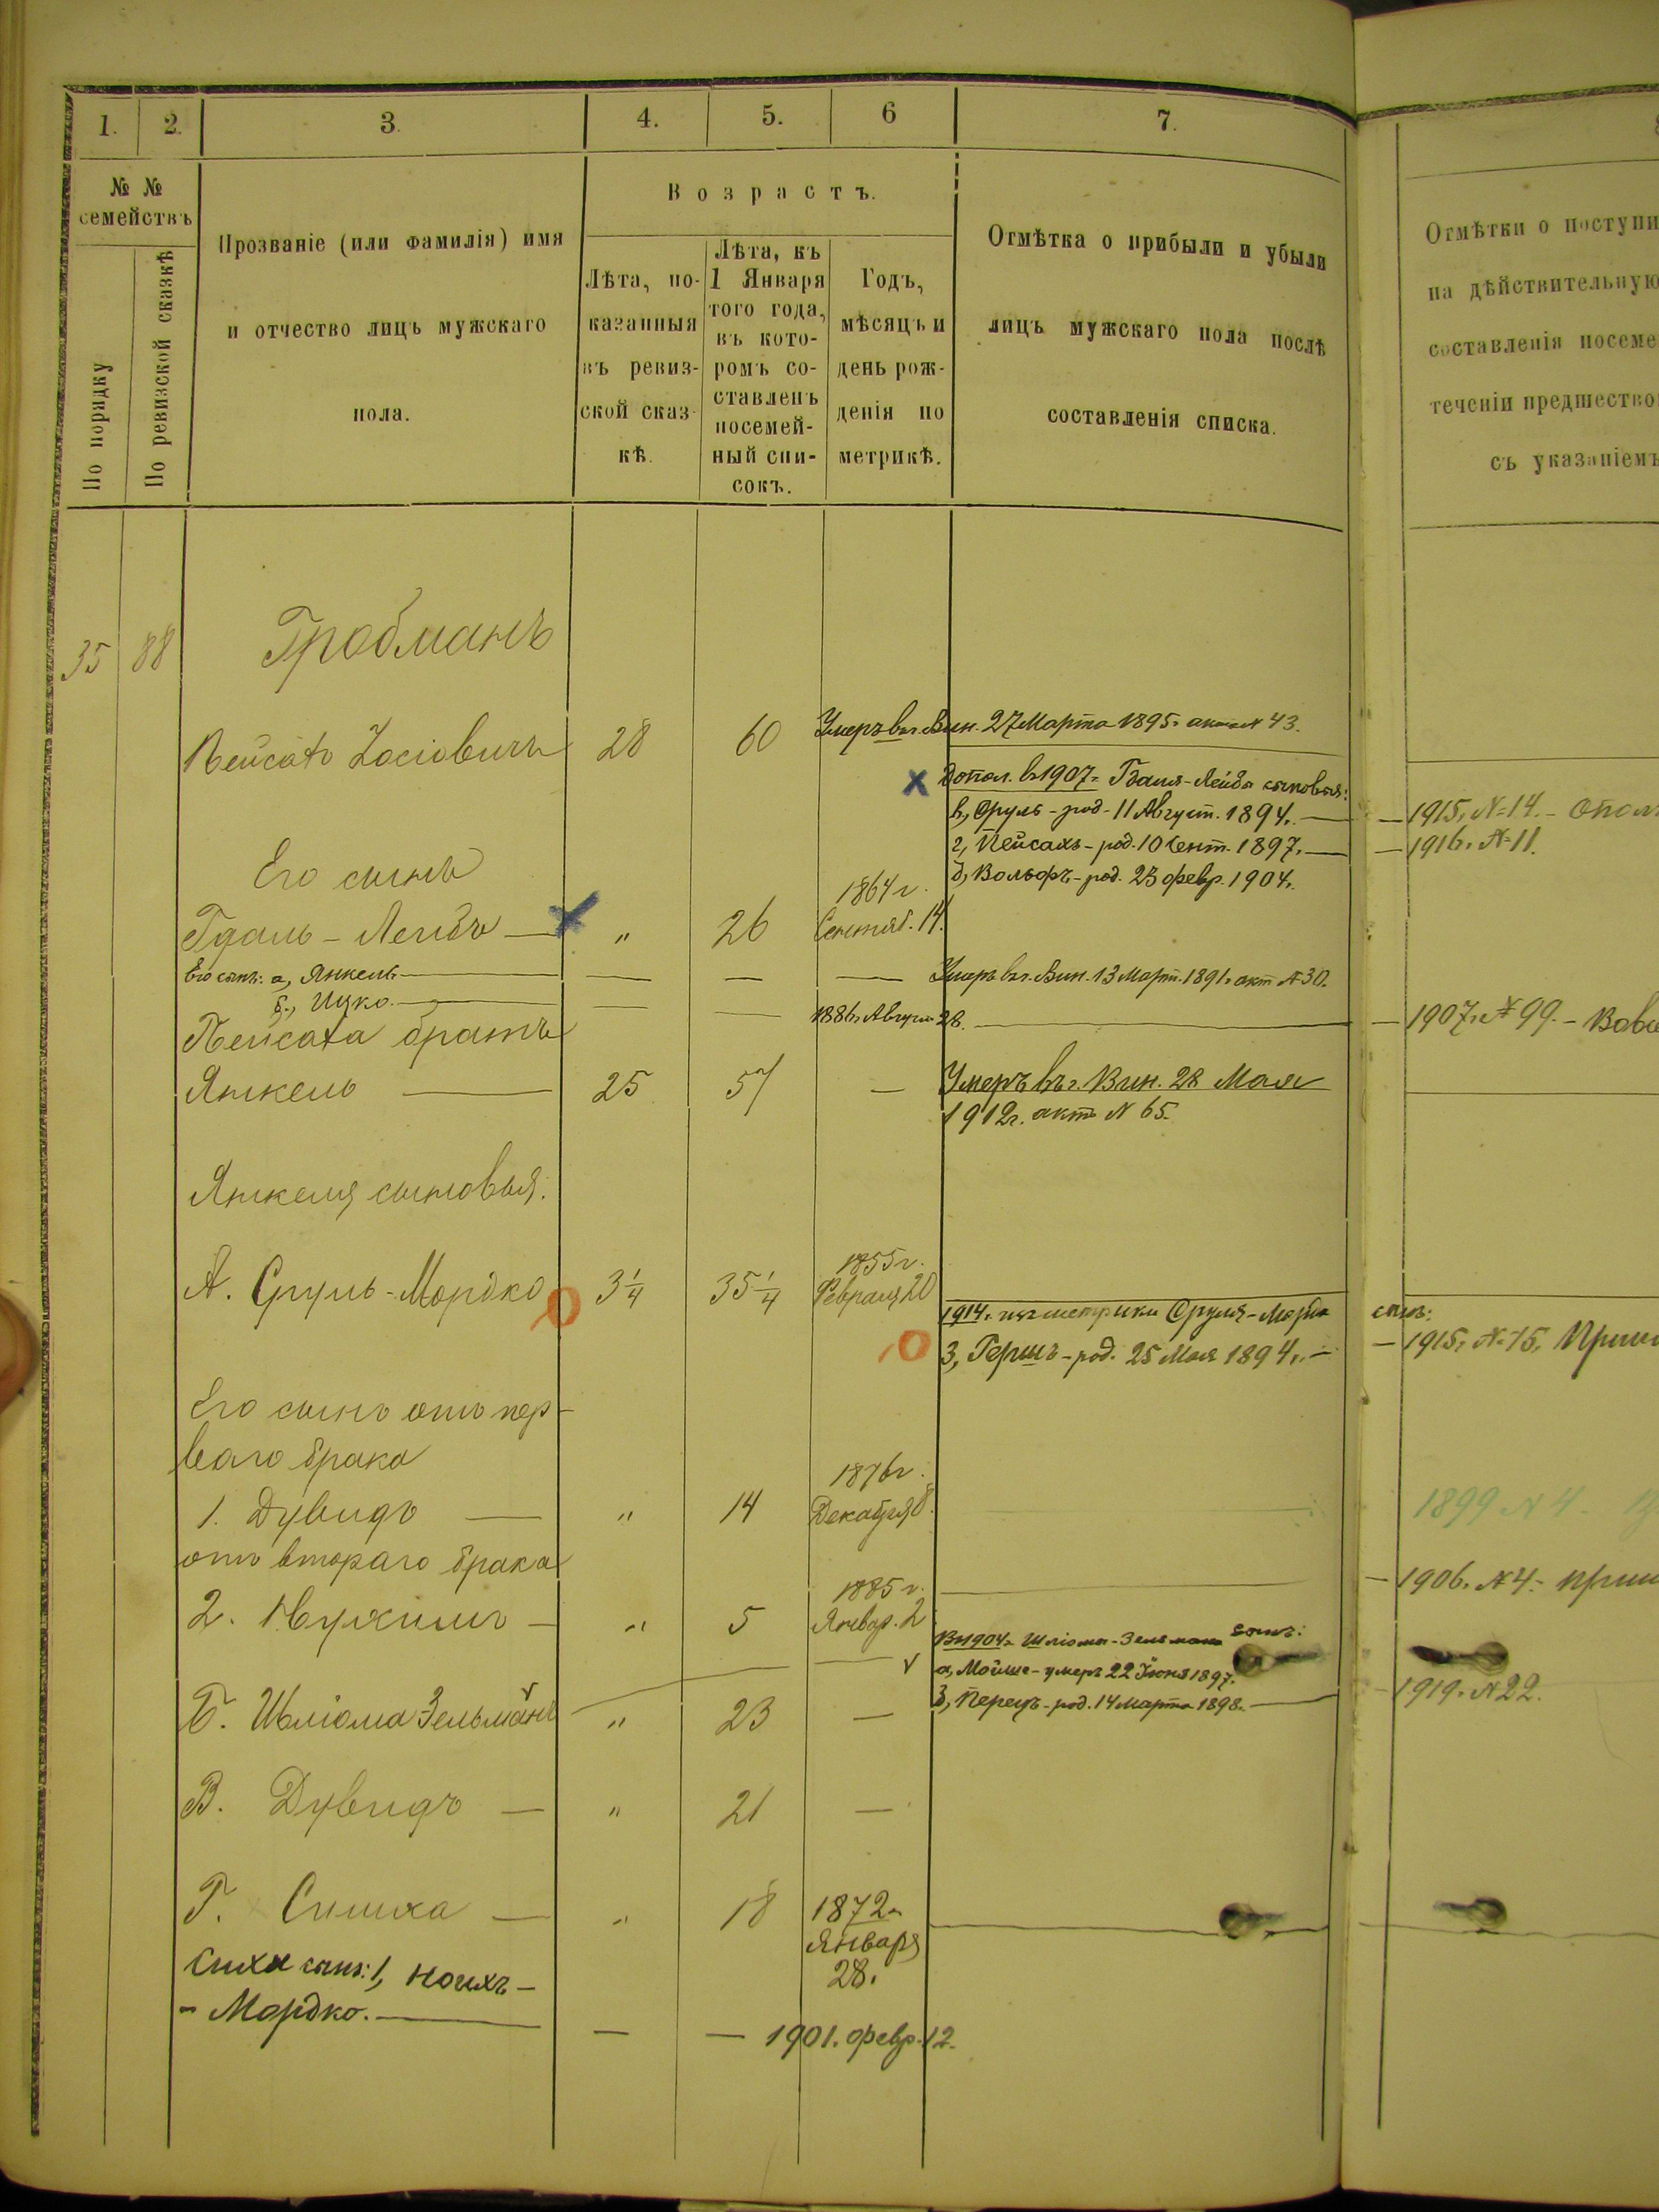 1. 2. 3. 4. 5. 6 7.
№ №
семействъ
По порядку
По ревизской сказкѣ
Прозваніе (или фамилія) имя
и отчество лицъ мужскаго
пола.
Возрастъ.
Лѣта, по-
казанныя
въ ревиз-
ской сказ-
кѣ.
Лѣта, къ
1 Января
того года,
въ кото-
ромъ со-
ставленъ
посемей-
ный спи-
сокъ.
Годъ,
мѣсяцъ и
день рож-
денія по
метрикѣ.
Отмѣтка о прибыли и убыли
лицъ мужскаго пола послѣ
составленія списка.
Отмѣтки о поступи
на дѣйствительную
составленія посеме
теченіи предшество
съ указаніемъ
35 88 Гробманъ
Пейсахъ Іосіовичъ 28 60 Умеръ въ г. Вин. 27 Марта 1895г. актъ N 43.
Допол. въ 1907г. Гдаля-Лейбы сыновья:
в, Сруль - род. 11 Август. 1894г. — 1915г. N 14. - Опол
г, Пейсахъ - род. 10 Сент. 1897г. — 1916г. N 11.
д, Вольфъ - род. 23 февр. 1904г.
Его сынъ
Гдаль - Лейбъ — " 26 1864 г. Сентяб. 14.
Его сынъ: а, Янкель — — — — Умеръ въ г. Вин. 13 Март. 1891г. акт N 30.
б, Ицко. — — — 1886г. Август 28. — 1907г. N 99. -
Пейсаха братъ
Янкель — 25 57 — Умеръ въ г. Вин. 28 Мая
1912г. актъ N 65.
Янкеля сыновья:
А. Сруль - Мордко 3 1/4 35 1/4 1855 г. Февраля 20
1914г. изъ метрики Сруля-Мордко сынъ:
3, Гершъ - род. 25 Мая 1894г. — 1915г. N 15,
Его сынъ отъ пер-
ваго брака
1. Дувидъ — " 14 1876 г. Декабря 8. 1899 N 4.
отъ втораго брака
2. Нухимъ — " 5 1885 г. Январ. 2 — 1906г. N 4. -
Въ 1904г. Шліомы-Зельмана сынъ:
а, Мойше - умеръ 22 Іюня 1897г.
б, Перецъ - род. 14 Марта 1898г. — 1919г. N 22.
Б. Шліома Зельманъ " 23 —
В. Дувидъ — " 21 —
Г. Симха — " 18 1872г.
Января
28.
Сихи сынъ: 1, Ноихъ -
- Мордко. — — — 1901г. февр. 12.